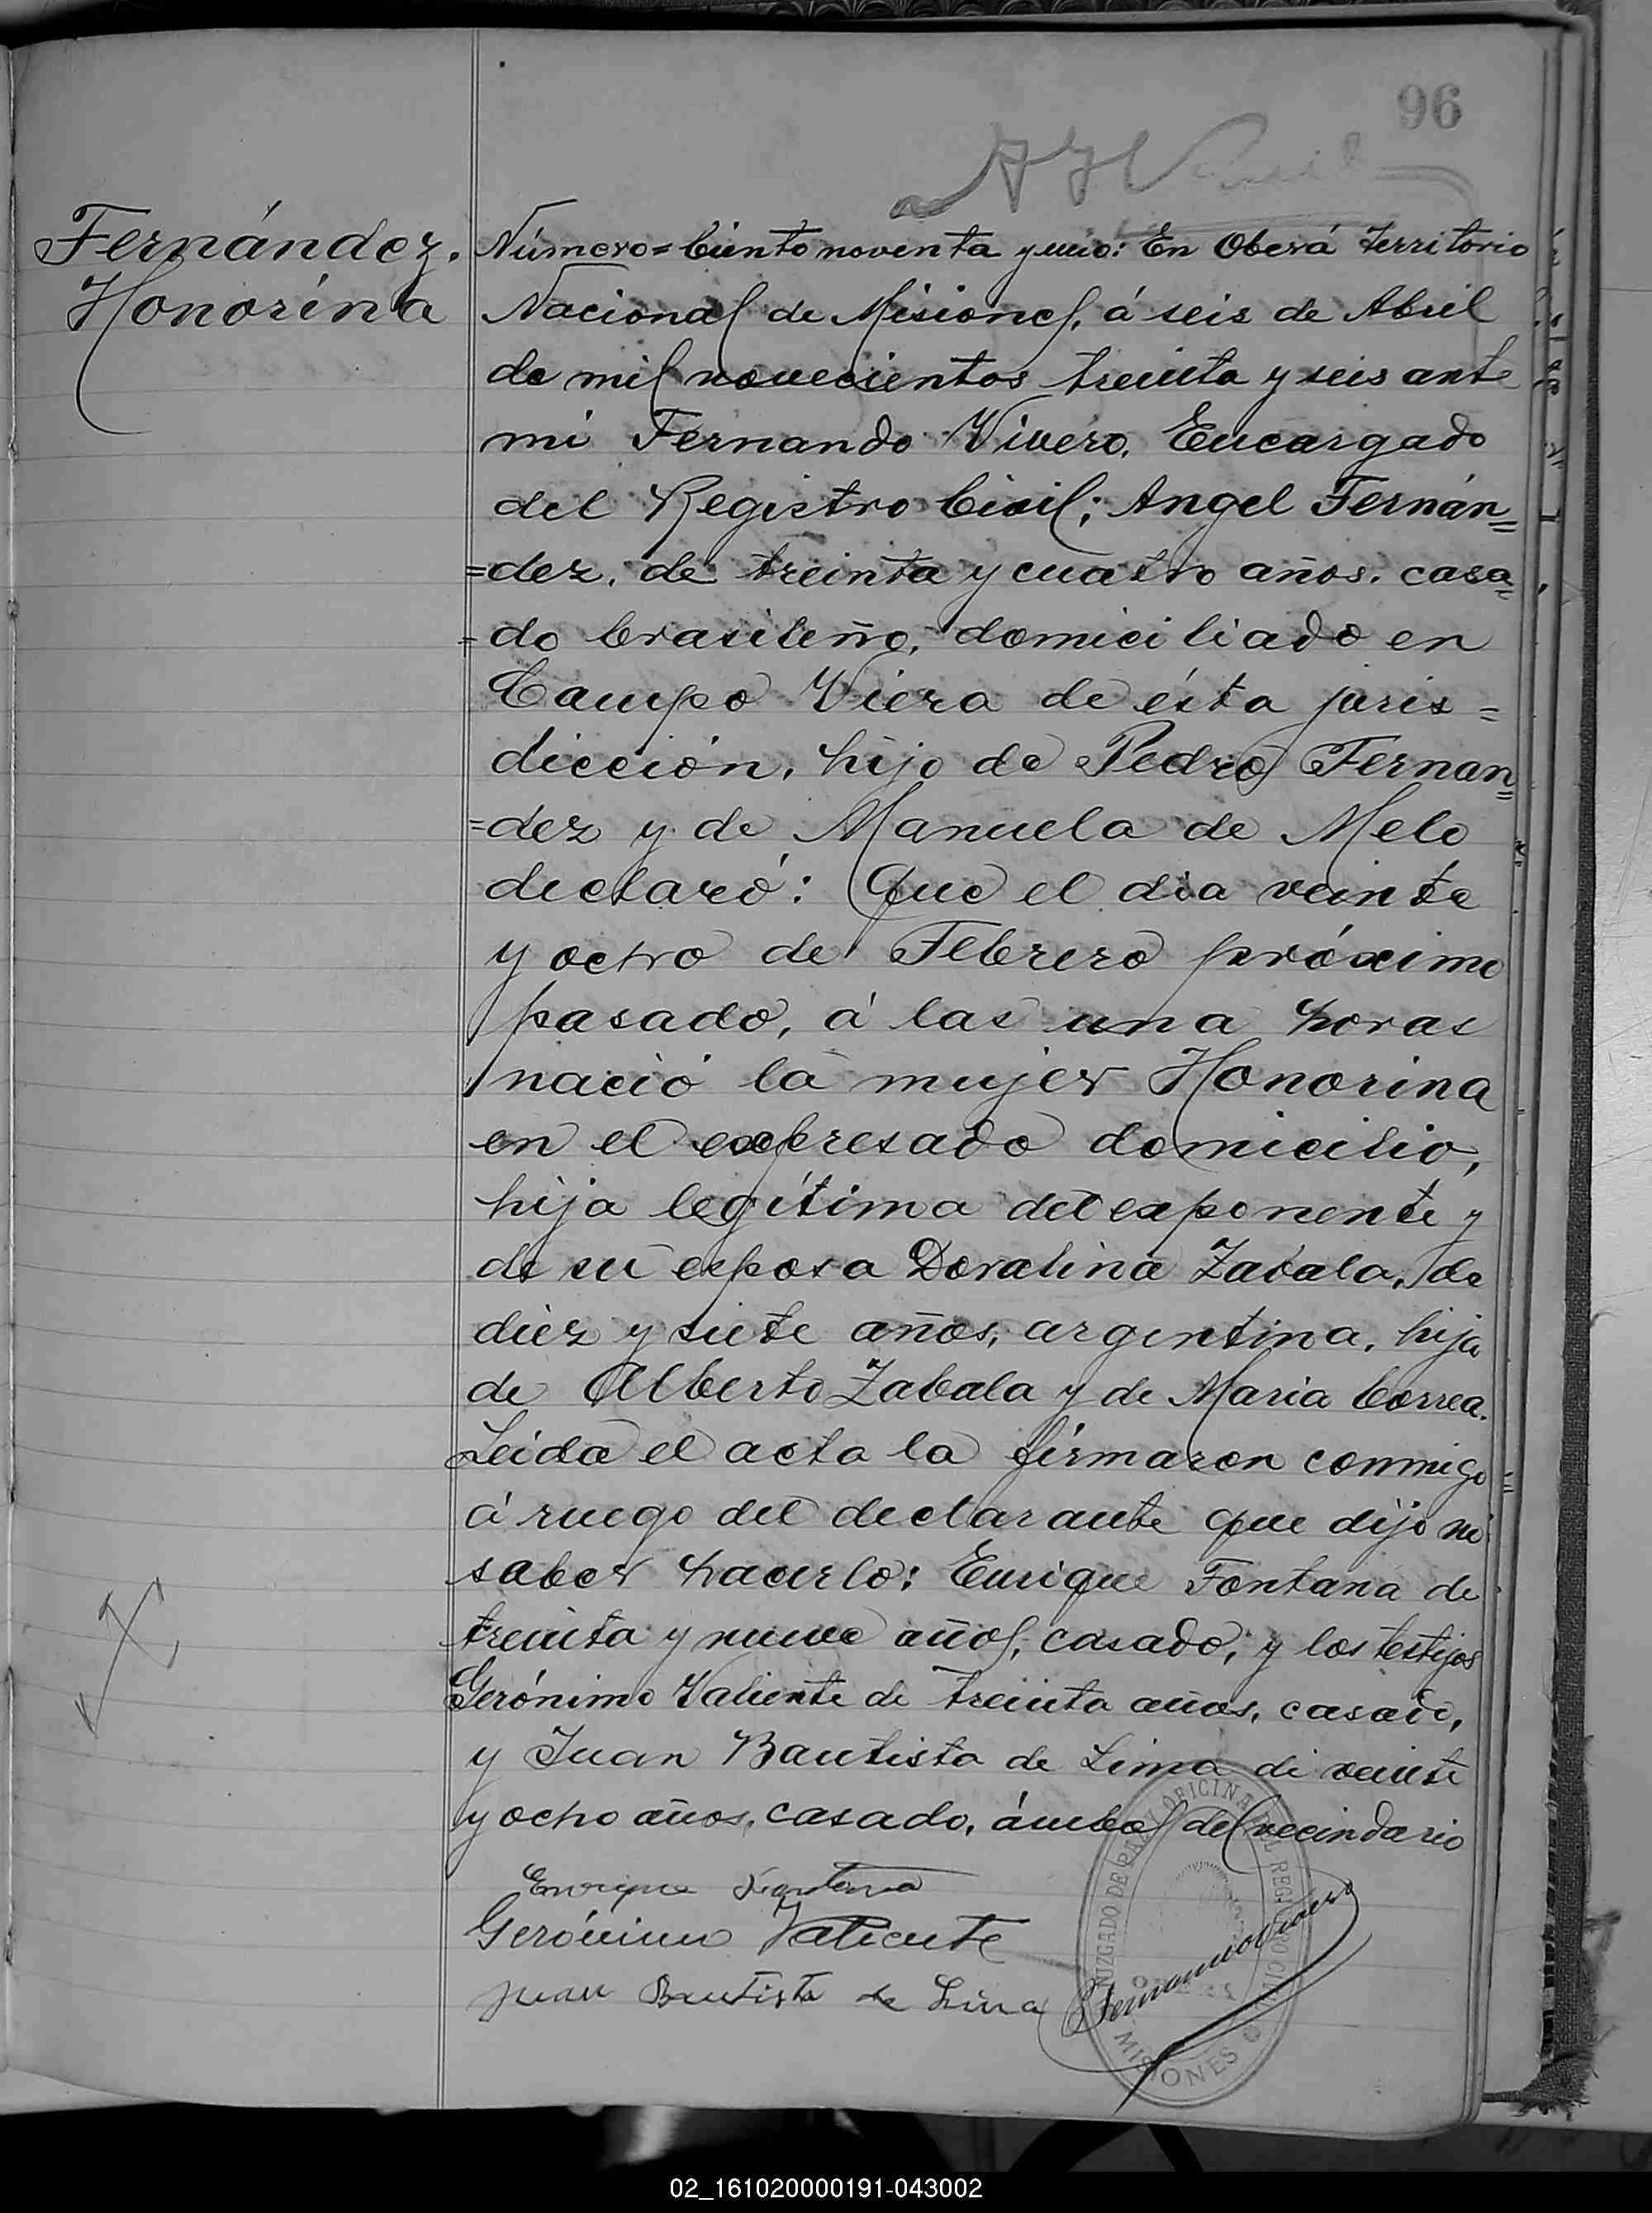 96
Fernández.
Honorina
Número = Ciento noventa y uno: En Oberá Territorio
Nacional de Misiones, á seis de Abril
de mil novecientos treinta y seis ante
mi Fernando Vivero, Encargado
del Registro Civil; Angel Fernán=
=dez, de treinta y cuatro años, casa=
=do brasileño, domiciliado en
Campo Viera de ésta juris=
dicción, hijo de Pedro Fernan=
=dez y de Manuela de Melo
declaró: Que el dia veinte
y ocho de Febrero próximo
pasado, á las una horas
nació la mujer Honorina
en el expresado domicilio,
hija legítima del exponente y
de su esposa Doralina Zabala, de
diez y siete años, argentina, hija
de Alberto Zabala y de Maria Correa.
Leida el acta la firmaron conmigo=
á ruego del declarante que dijo no
saber hacerlo: Enrique Fontana de
treinta y nueve años, casado, y los testijos
Gerónimo Valiente de treinta años, casado,
y Juan Bautista de Lima de veinte
y ocho años, casado, ámbos del vecindario
Enrique Fontana
Gerónimo Valiente
Juan Bautista de Lima
Fernando Vivero
JUZGADO DE PAZ Y OFICINA DEL REGISTRO CIVIL
MISIONES
02_161020000191-043002